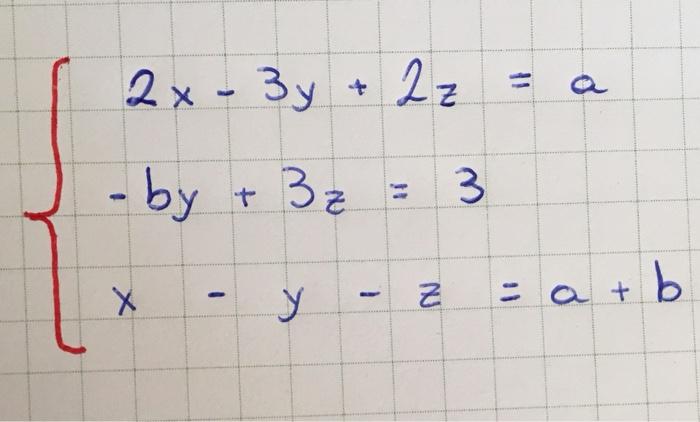 2x - 3y + 2z = a
- by + 3z = 3
x - y - z = a + b